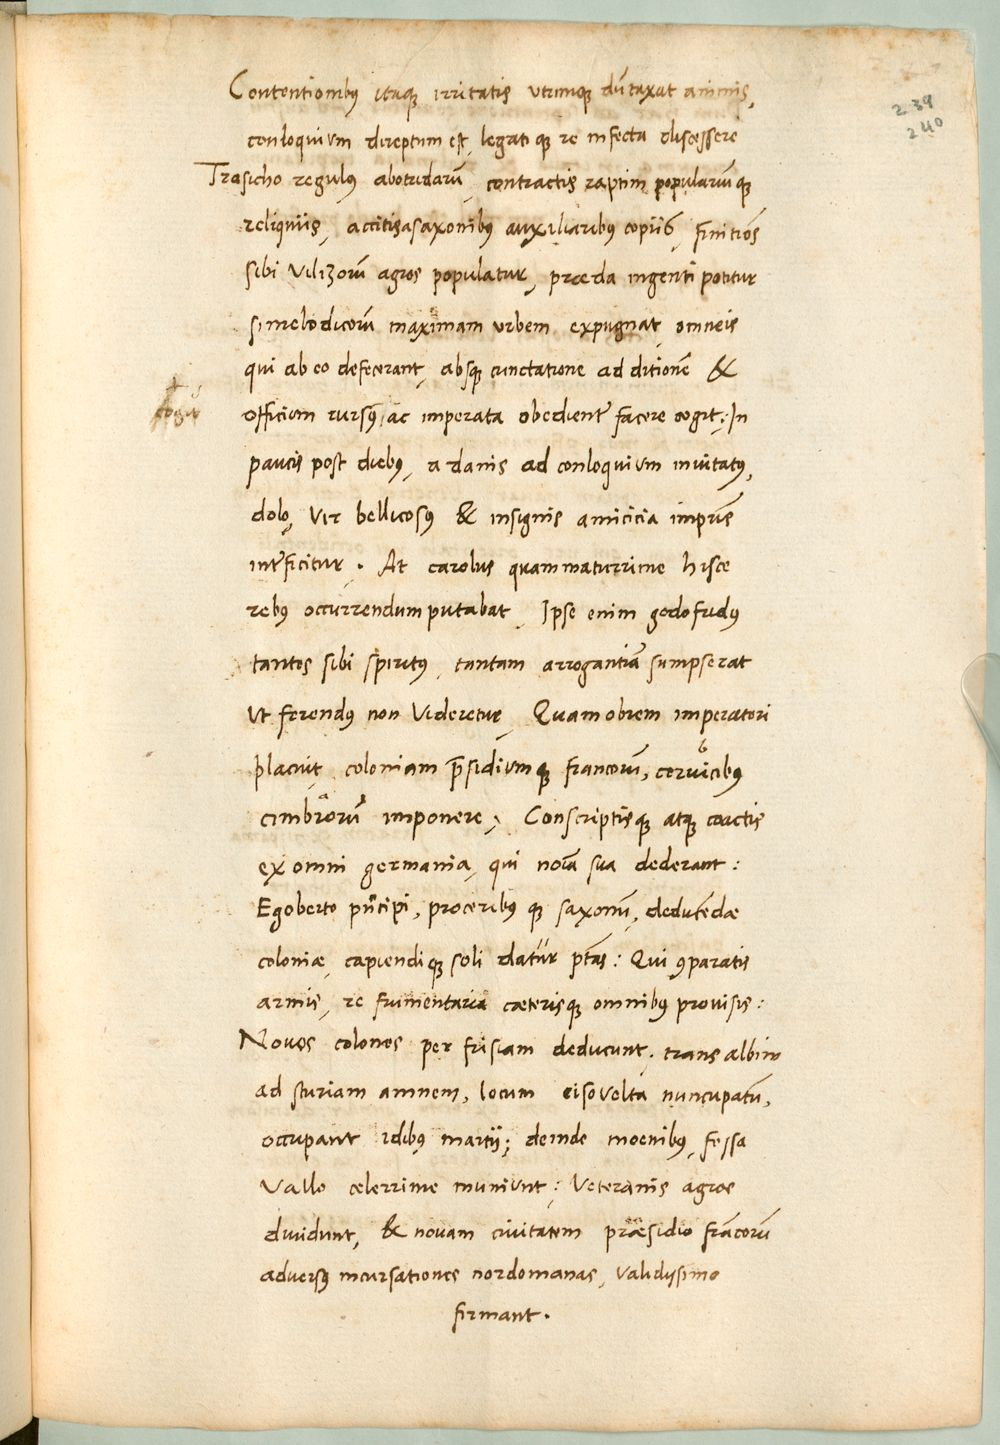 Contentionibꝰ itaqꝫ irritatis utrinqꝫ dūtaxat animis,
239
240
conloquium direptum est, legati qꝫ re infecta discessere
Trasicho regulꝰ abotridarū, contractis raptim populariū qꝫ
reliquiis, accitis a saxonibꝰ auxiliaribꝰ copiis, finitiōs
sibi Vilizorū agros populatur, præda ingenti potitur
simelodicorū maximam urbem expugnat, omneis
qui ab eo defecerant, absqꝫ cunctatione ad ditionē &
cogit
officium rursꝰ, ac imperata obedient͛ facere cogit: In
paucis post diebꝰ, a danis ad conloquium invitatꝰ,
dolo, vir bellicosꝰ & insignis amicicia imprīs
int͛ficitur. At carolus quam maturrime hisce
rebꝰ occurrendum putabat, Ipse enim godofridꝰ
tantos sibi spiritꝰ, tantam arrogantiā sumpserat
ut ferendꝰ non videretur, Quam obrem imperatori
placuit, coloniam p̄sidium qꝫ francorū, cervicibꝰ
cimbrorū imponere, Conscriptisqꝫ atqꝫ coactis
ex omni germania, qui noīa sua dederant:
Egoberto prīcipi, proceribꝰ qꝫ saxonū, deducēdæ
coloniæ, capiendi qꝫ soli datur ptās: Qui ꝯparatis
armis, re frumentaria cæterisqꝫ omnibꝰ provisis:
Novos colonos per frisiam deducunt, trans albim
ad sturiam amnem, locum eisovolta nuncupatū,
occupant idibꝰ martij; deinde moenibꝰ, fossa
Vallo celerrime muniunt: Veteranis agros
dividunt, & novam civitatem præsidio frācorū
adversꝰ incursationes nordomanas, validissimo
firmant.